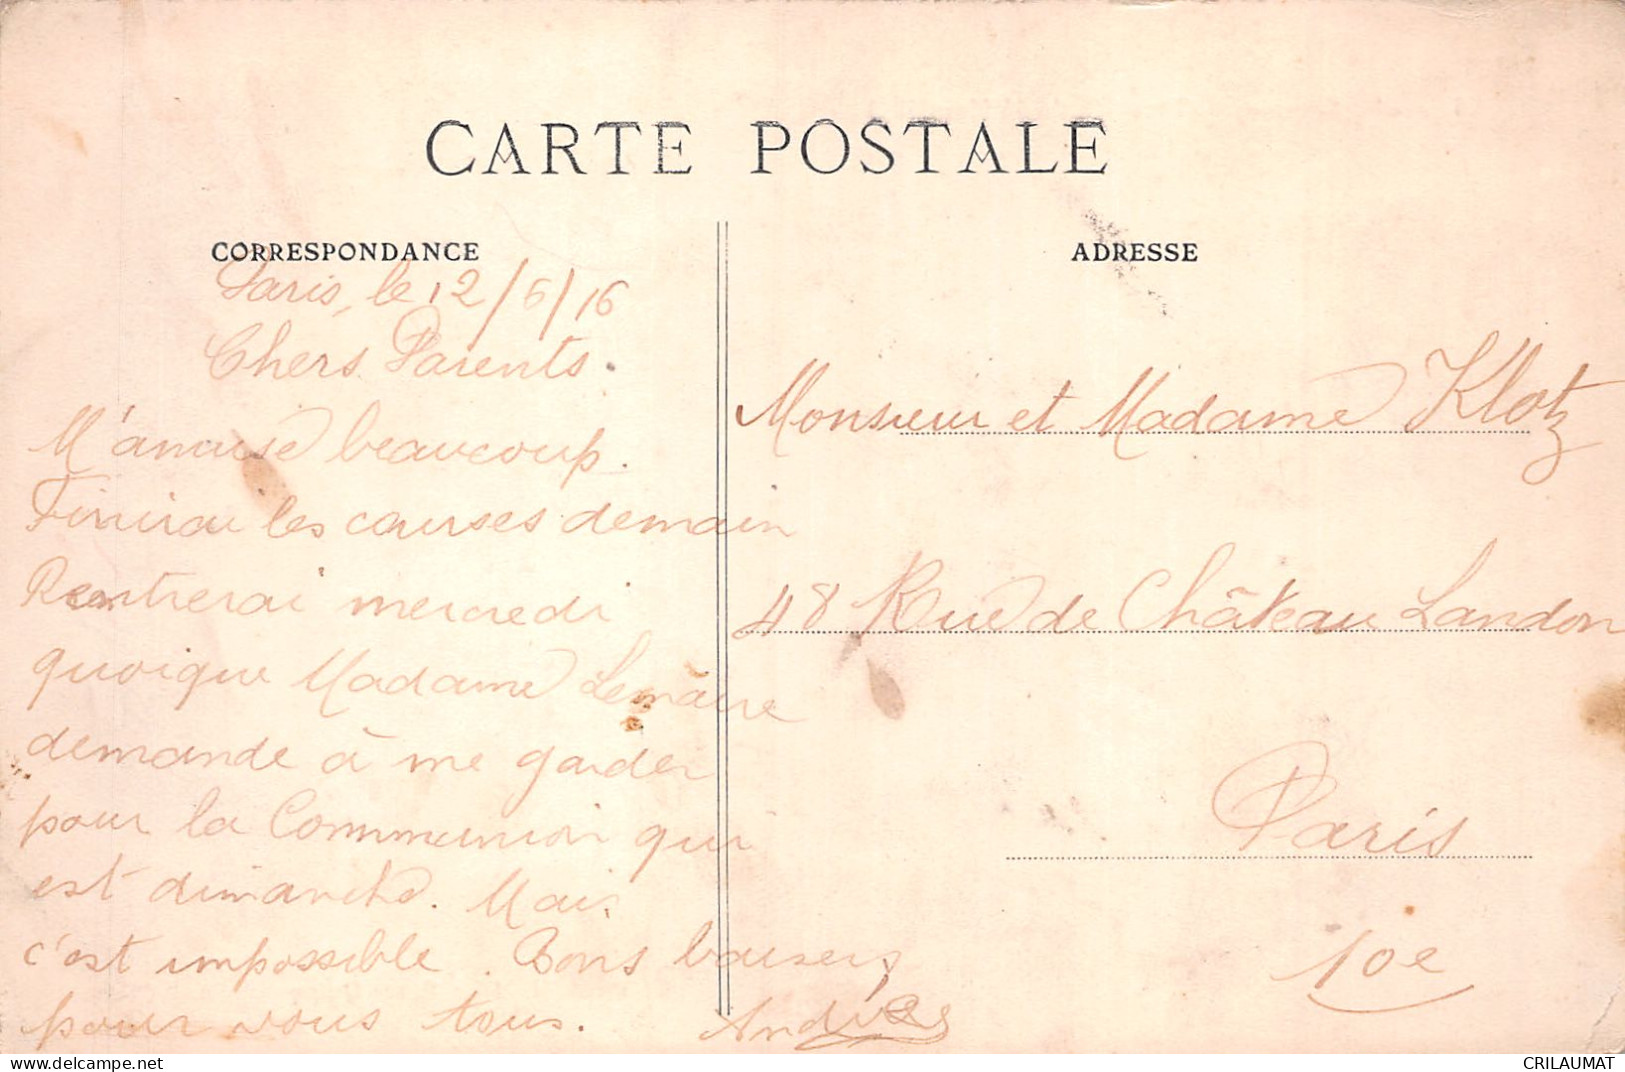 CARTE POSTALE
CORRESPONDANCE
ADRESSE
Paris, le 12/6/16
Chers Parents.
M'amuse beaucoup.
Finirai les courses demain
Rentrerai mercredi
quoique Madame Lemaire
demande à me garder
pour la Communion qui
est dimanche. Mais
c'est impossible. Bons baisers
pour vous tous.
Monsieur et Madame Klotz
48 Rue de Château Landon
Paris
10e
CRILAUMAT